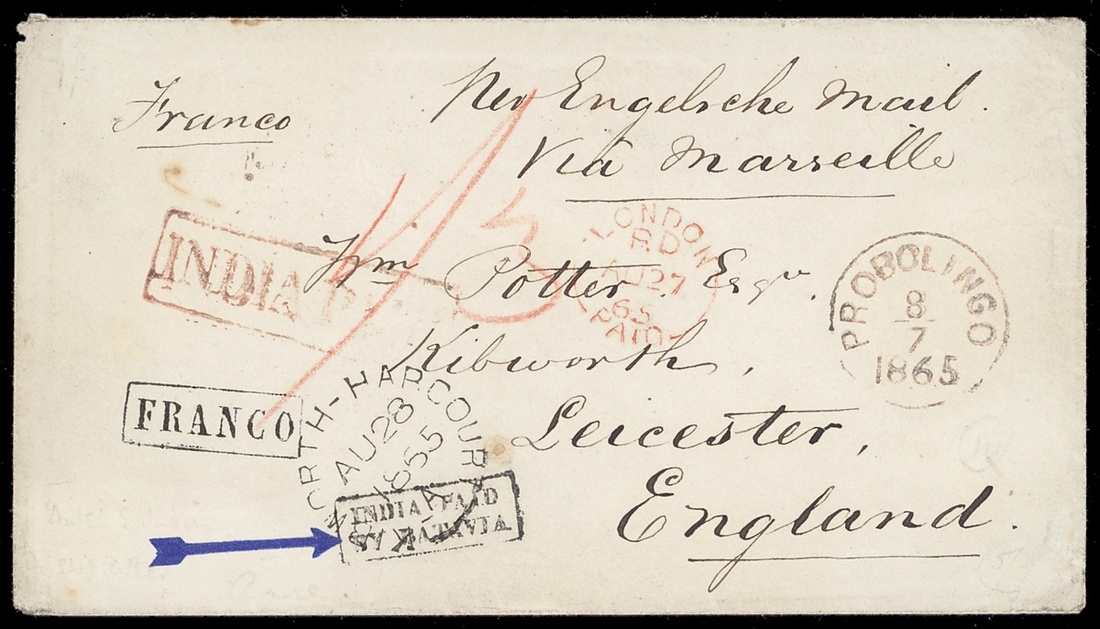 Franco
Per Engelsche Mail.
Via Marseille
LONDON
AU 27
65
PAID
INDIA
Wm Potter Esqr.
Kibworth,
Leicester,
England.
PROBOLINGO
8
7
1865
FRANCO
RTH-HARCOUR
AU 28
1865
INDIA PAID
BATAVIA